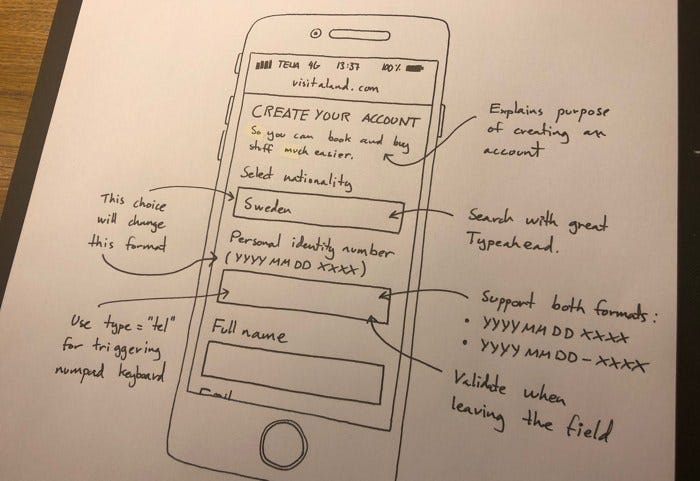 TELIA 4G 13:37 100%
visitaland.com
CREATE YOUR ACCOUNT
So you can book and buy
stuff much easier.
Select nationality
Sweden
Personal identity number
(YYYY MM DD XXXX)
Full name
Email
Explains purpose
of creating an
account
This choice
will change
this format
Search with great
Typeahead.
Use type = "tel"
for triggering
numpad keyboard
Support both formats:
• YYYY MM DD XXXX
• YYYY MM DD - XXXX
Validate when
leaving the field